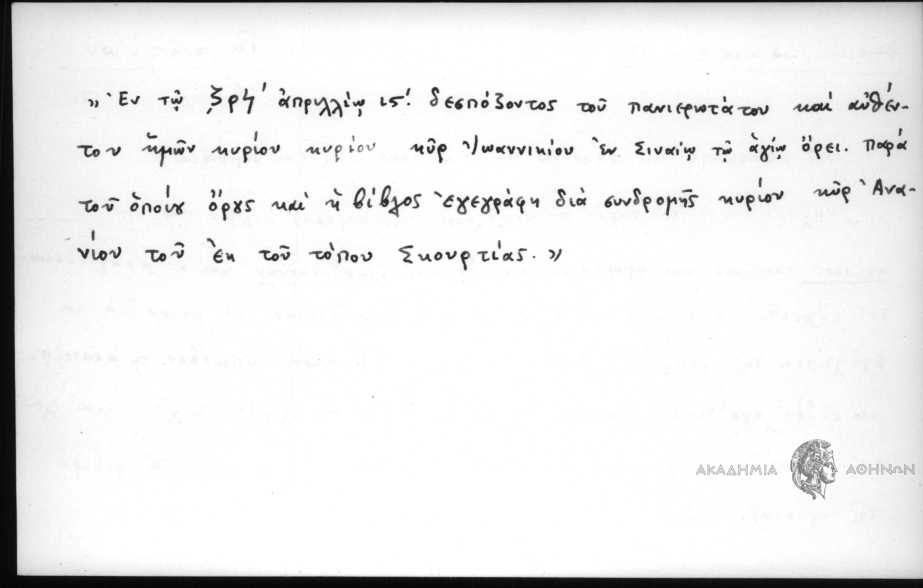 „ Ἐν τῷ ͵ζρϟ′ ἀπριλλίῳ ιϛ′. δεσπόζοντος τοῦ πανιερωτάτου καὶ αὐθέν-
του ἡμῶν κυρίου κυρίου κῦρ Ἰωαννικίου ἐν Σιναίῳ τῷ ἁγίῳ ὄρει. Παρά
τοῦ ὁποίου ὄρυς καὶ ἡ βίβλος ἐγεγράφη διὰ συνδρομῆς κυρίου κῦρ Ἀνα-
νίου τοῦ ἐκ τοῦ τόπου Σκουρτίας. »
ΑΚΑΔΗΜΙΑ ΑΘΗΝΩΝ